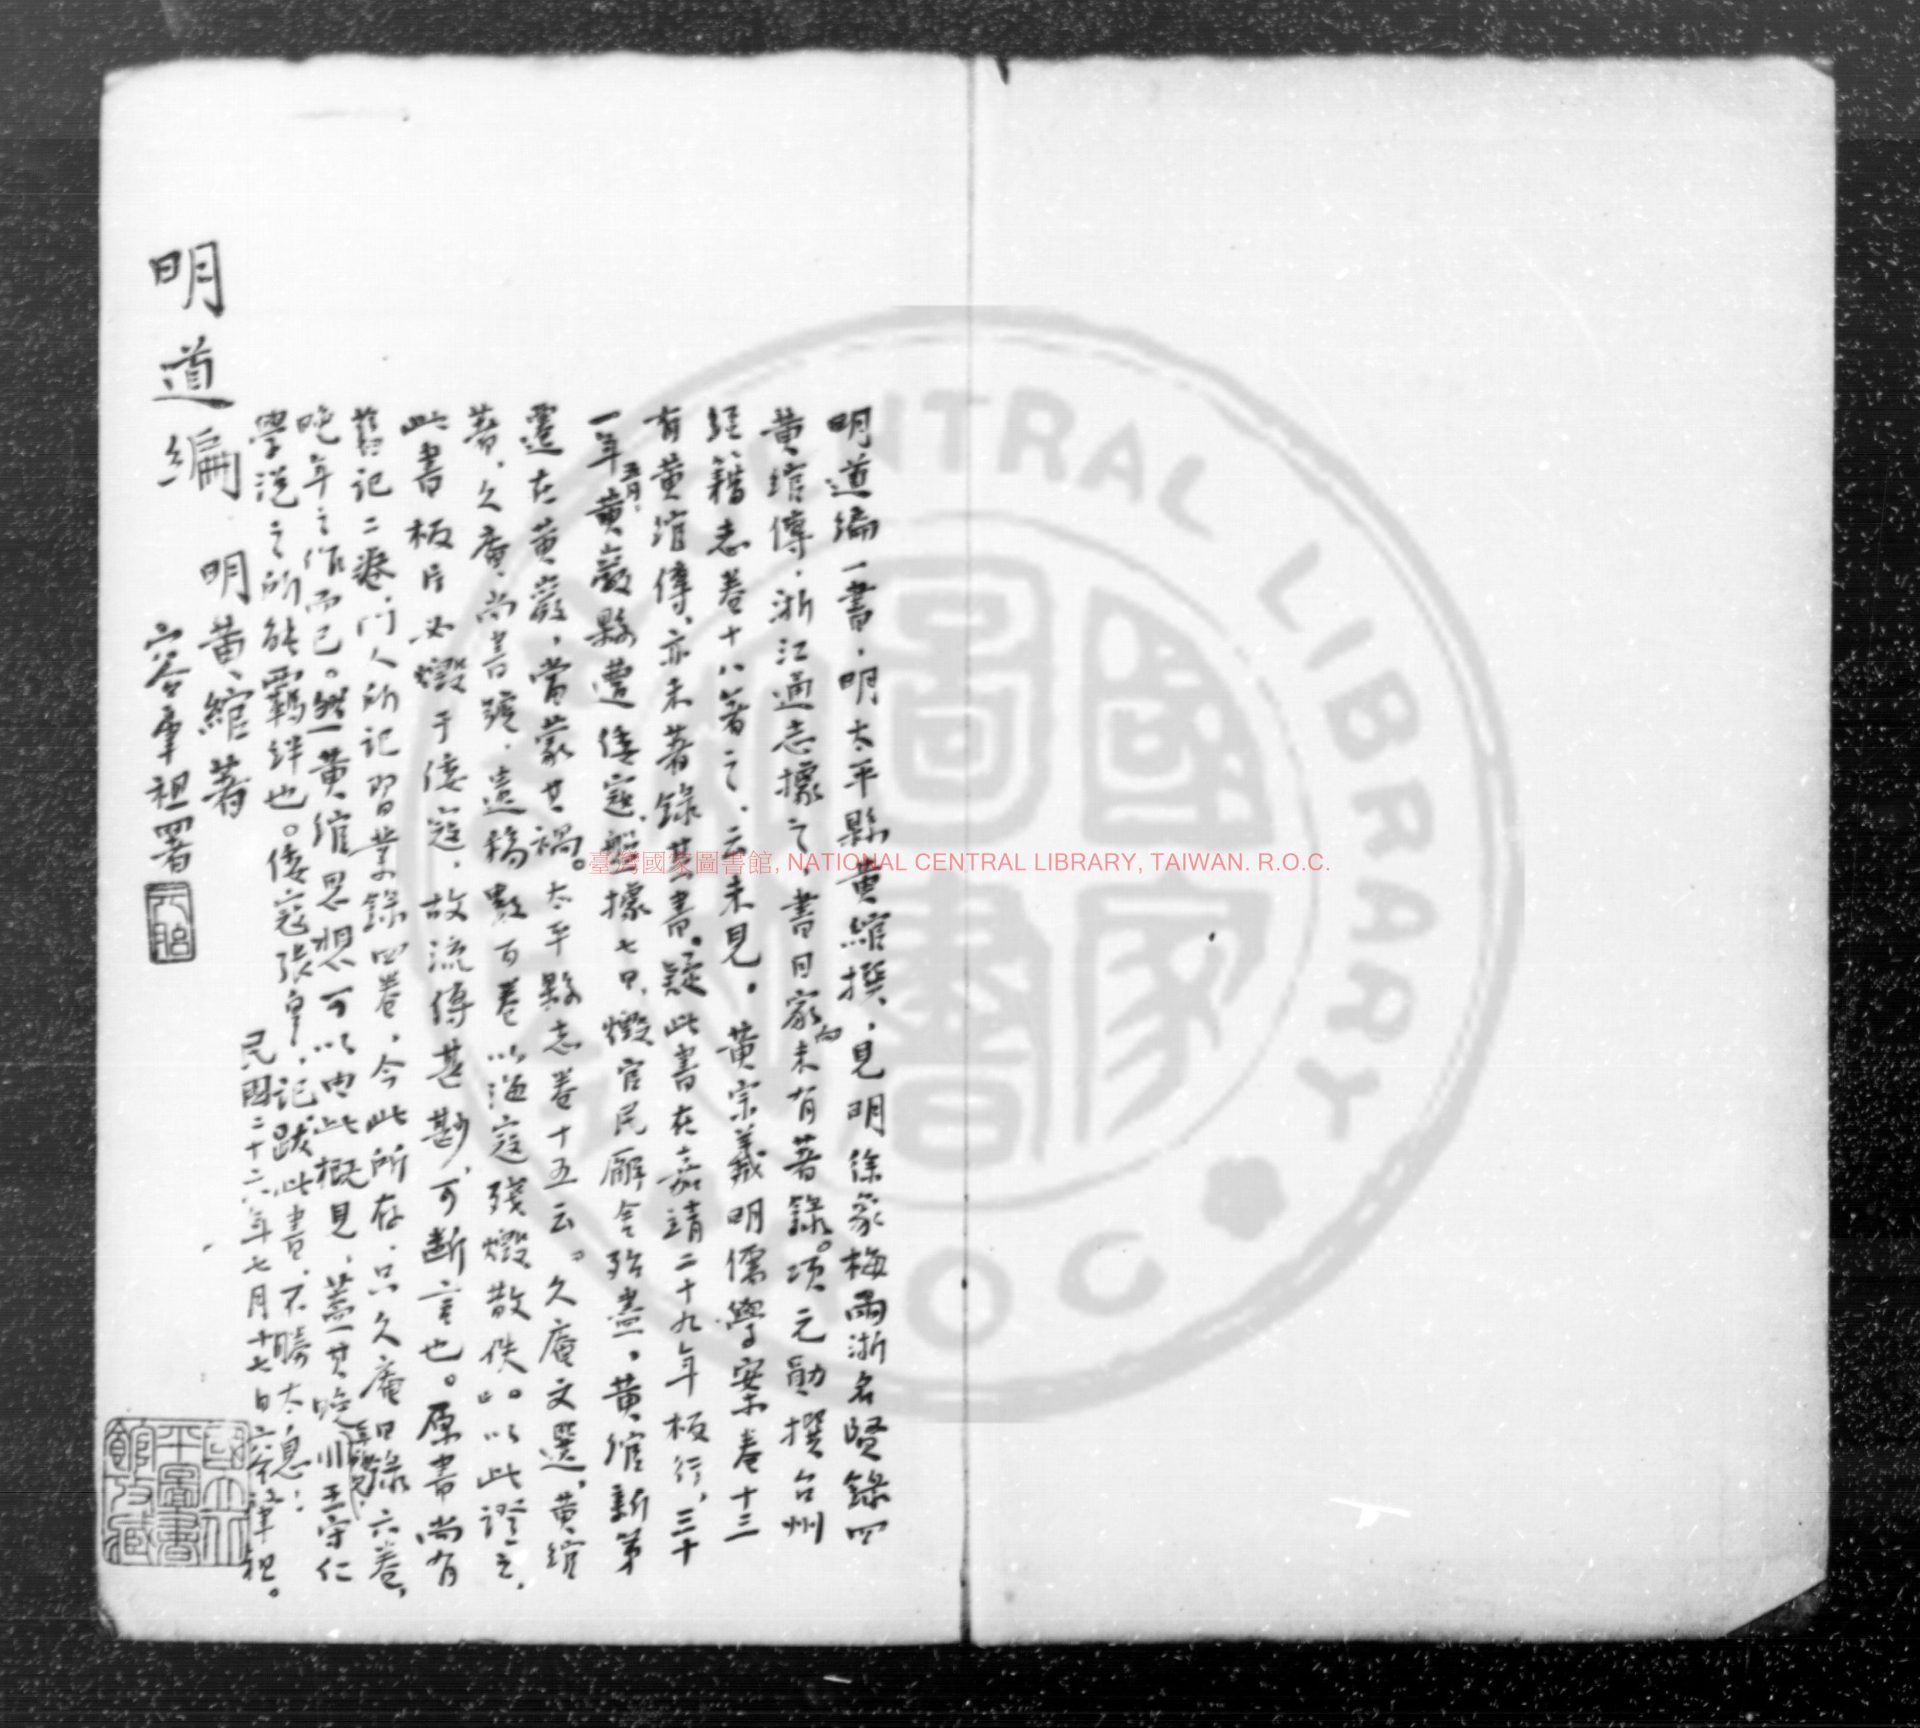 明道編一書，明太平縣黃綰撰，見明徐象梅兩浙名賢錄四
黃綰傳，浙江通志據之，書目家向未有著錄。項元勛撰台州
經籍志卷十八著之，云未見。黃宗羲明儒學案卷十三
有黃綰傳，亦未著錄其書。疑此書在嘉靖二十九年板行，三十
一年五月，黃巖縣遭倭寇盤據七日，燬官民廨舍殆盡。黃綰新第
還在黃巖，當蒙其禍。太平縣志卷十五云。久庵文選，黃綰
著，久庵尚書號，遺稿數百卷以海寇殘燬散佚。以此證之，
此書板片必燬于倭寇，故流傳甚尟，可斷言也。原書尚有
舊記二卷，門人所記習業錄四卷，今此所存，只久庵日錄六卷，
晚年之作而已。然黃綰思想可以由此概見，蓋其晚年獨見，非王守仁
學說之所能羈絆也。倭寇張皇，記跋此書，不勝太息！
民國二十六年七月十七日六谷覃祖。
明道編
明黃綰著
六谷覃祖署
國立北
平圖書
館攷藏
臺灣國家圖書館, NATIONAL CENTRAL LIBRARY, TAIWAN. R.O.C.